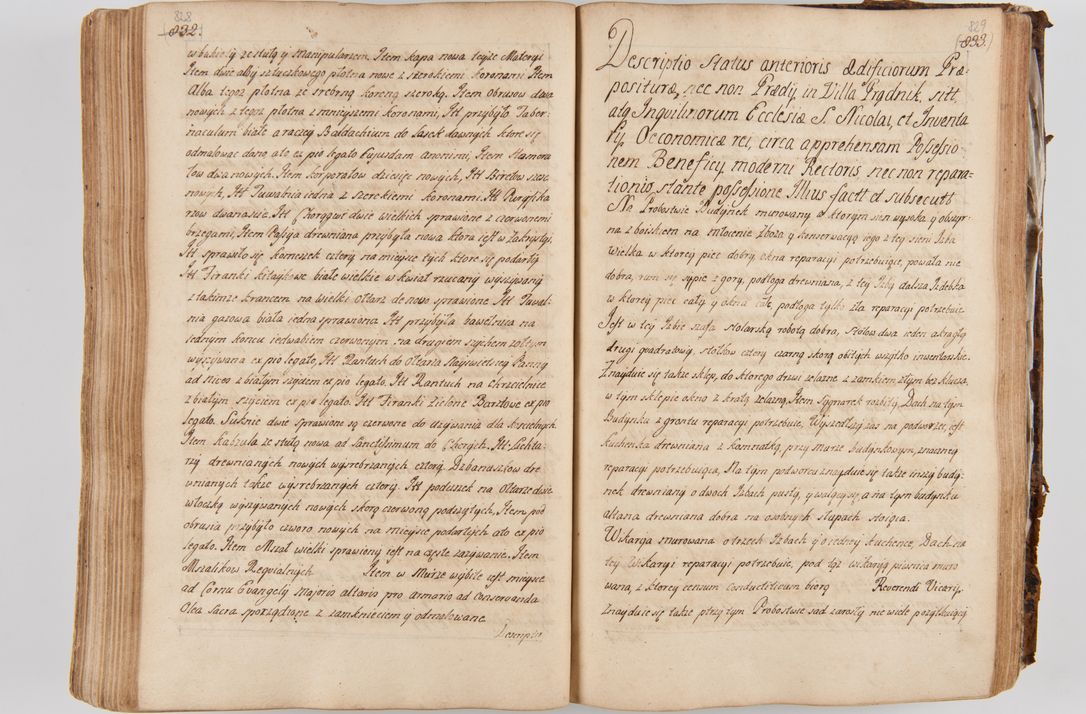 828
(832.)
w bukiety ze stułą y manipularzem. Item kapa nowa teyże Materyi
Item dwie alby sztuczkowego płotna nowe z szerokiemi koronami. Item
Alba tegoż płotna ze srebrną koroną szeroką. Item obrusow dwa
nowych z tegoż płotna z mnieyszemi koronami, Itt przybyło Taber-
naculum białe a raczey Baldachium do lasek dawnych ktore się
odmalować dano, ato ex pio legato Cujusdam anonimi, Item Humera
łow dwa nowych. Item korporałow dziesięć nowych, Itt Biretow sześć
nowych, Itt Tuwalnia iedna z szerokiemi koronami. Itt Puryfika
rzow dwanaście. Itt Chorągwie dwie wielkich sprawione z czerwonemi
brzegami, Item Passya drewniana przybyła nowa ktora iest w Zakrystyi,
Itt sprawiło się komeszek cztery na mieysce tych ktore się podarły
Itt Firanki kitaykowe białe wielkie w kwiat rzucany wyszywany
z takimże krancem na wielki Ołtarz de novo sprawione Itt Tuwal-
nia gazowa biała iedna sprawiona Itt przybyła bawełnica na
iednym koncu iedwabiem czerwonym, na drugiem szychem żołtym
wyszywana ex pio legato, Itt Rantuch do Ołtarza Nayświętszey Panny
ad nives z białym szyciem ex pio legato. Itt Rantuch na Chrzcielnice
z białym szyciem ex pio legato. Itt Firanki zielone Barżowe ex pio
legato. Suknie dwie sprawione są czerwone do używania dla koscielnych
Item Kapzula ze stułą nowa ad Sanctissimum do Chorych. Itt Lichta-
rzy drewnianych nowych wysrebrzanych cztery. Dzbanuszkow dre
wnianych także wysrebrzanych cztery. Itt poduszek na Ołtarze dwie
włoczką wyszywanych nowych skorą czerwoną podszytych, Item pod
obrusia przybyło czworo nowych na mieysce podartych ato ex pio
legato. Item Mszał wielki sprawiony iest na częste zażywanie, Item
Mszalikow Requialnych Item w Murze wybite iest mieysce
ad Cornu Evangelij Majoris altaris pro armario ad conservanda
Olea Sacra sporządzone z zamknieciem y odmalowane.
Descriptio
829
(833.)
Descriptio status anterioris Ædificiorum Præ-
posituræ, nec non Prædij in Villa Prądnik, sitt
atq Inquilinorum Ecclesiæ S. Nicolai, et Inventa
rij Oeconomicæ rei, circa apprehensam Possessio-
nem Beneficij moderni Rectoris nec non repara-
tionis stante possessione Illius factæ et subsecutæ
Na Probostwie Budynek murowany w ktorym sien wysoka y obszyr-
na z boiskiem na młocenie zboża y konserwacyą iego z tey sieni Izba
wielka w ktorey piec dobry, okna reparacyi potrzebuiące, powała nie
dobra, rum się sypie z gory, podłoga drewniana, z tey Izby dalsza Izdebka
w ktorey piec cały y okna całe, podłoga tylko zła reparacyi potrzebuie
Jest w tey Izbie szafa stolarską robotą dobra, stołow dwa ieden okrągły
drugi quadratowy, stołkow cztery czarną skorą obitych wszytko inwentarskie.
Znayduie się także sklep, do ktorego drzwi żelazne z zamkiem złym bez klucza,
w tym sklepie okno z kratą żelazną, Item Sygnarek rozbity. Dach na tym
Budynku z gruntu reparacyi potrzebuie. Wyszedłszy zas na podworze, iest
Kuchenka drewniana z komorką, przy murze budynkowym, znaczney
reparacyi potrzebuiąca, Na tym podworcu znayduie się także inszy budy-
nek drewniany o dwoch Izbach pusty, y walący się, a na tym budynku
altana drewniana dobra na osobnych słupach stoiąca.
Wikarya murowana o trzech Izbach y o iedney kuchence, Dach na
tey Wikaryi reparacyi potrzebuie, pod tąż wikaryą piwnica muro
wana, z ktorey censum conductitium biorą Reverendi Vicarij.
Znayduie się także przy tym Probostwie sad zarosły nie wiele pożytkuiący